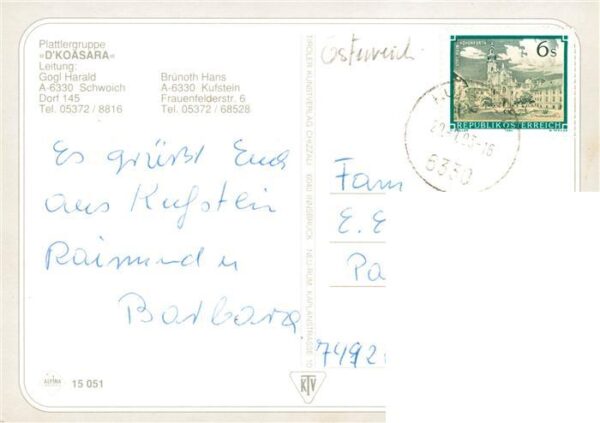 Plattlergruppe
»D'KOASARA«
Leitung:
Gogl Harald
A-6330 Schwoich
Dorf 145
Tel. 05372 / 8816
Brünoth Hans
A-6330 Kufstein
Frauenfelderstr. 6
Tel. 05372 / 68528
Es grüßt Euch
aus Kufstein
Raimund u
Barbara
15 051
TIROLER KUNSTVERLAG CHIZZALI · 6040 INNSBRUCK · NEURUM KAPLANSTRASSE 10
KTV
Österreich
6s
REPUBLIK ÖSTERREICH
6330
Fam
E. E
Pa
7492